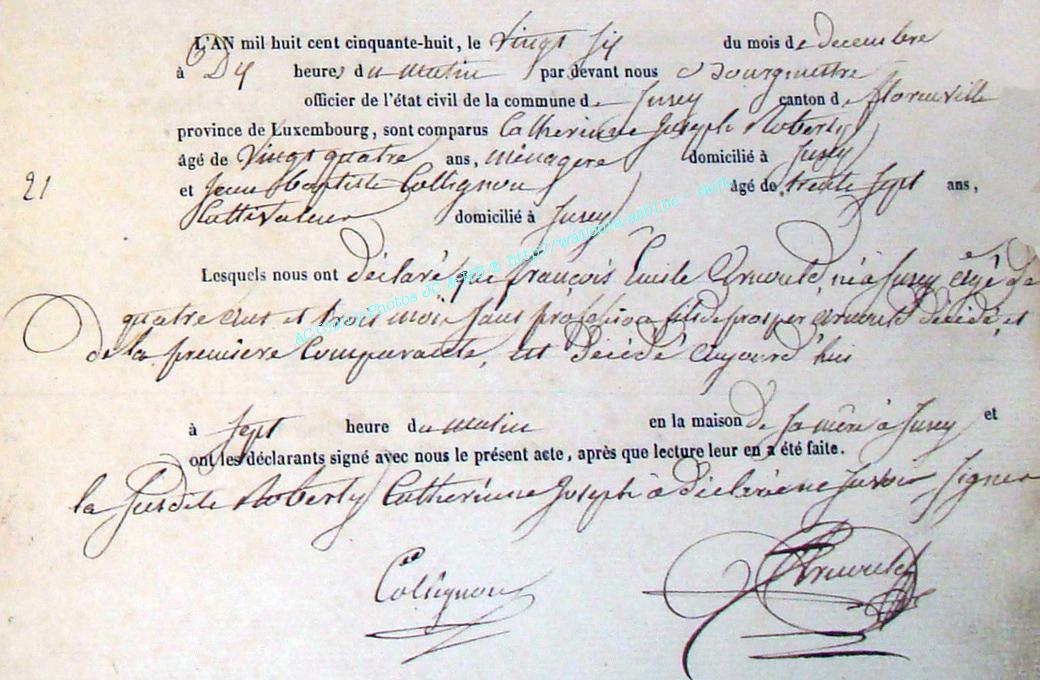 L'AN mil huit cent cinquante-huit, le vingt six du mois de decembre
à Dix heures du matin par devant nous Bourgmestre
officier de l'état civil de la commune de Jusey canton de florenville
province de Luxembourg, sont comparus Catherinne Joseph Roberty
âgé de vingt quatre ans, ménagere domicilié à Jusey
21
et Jean Baptiste Collignon âgé de trente sept ans,
Cultivateur domicilié à Jusey
Lesquels nous ont déclaré que françois Emile Arnould, né à Jusey agé de
quatre ans et trois mois sans profession fils de prosper arnould décédé, et
de la premiere Comparante, est décédé aujourd'hui
à sept heure du matin en la maison de sa mère à Jusey et
ont les déclarants signé avec nous le présent acte, après que lecture leur en a été faite.
la susdite Roberty Catherinne Joseph à déclaré ne savoir signer
Collignon Arnould